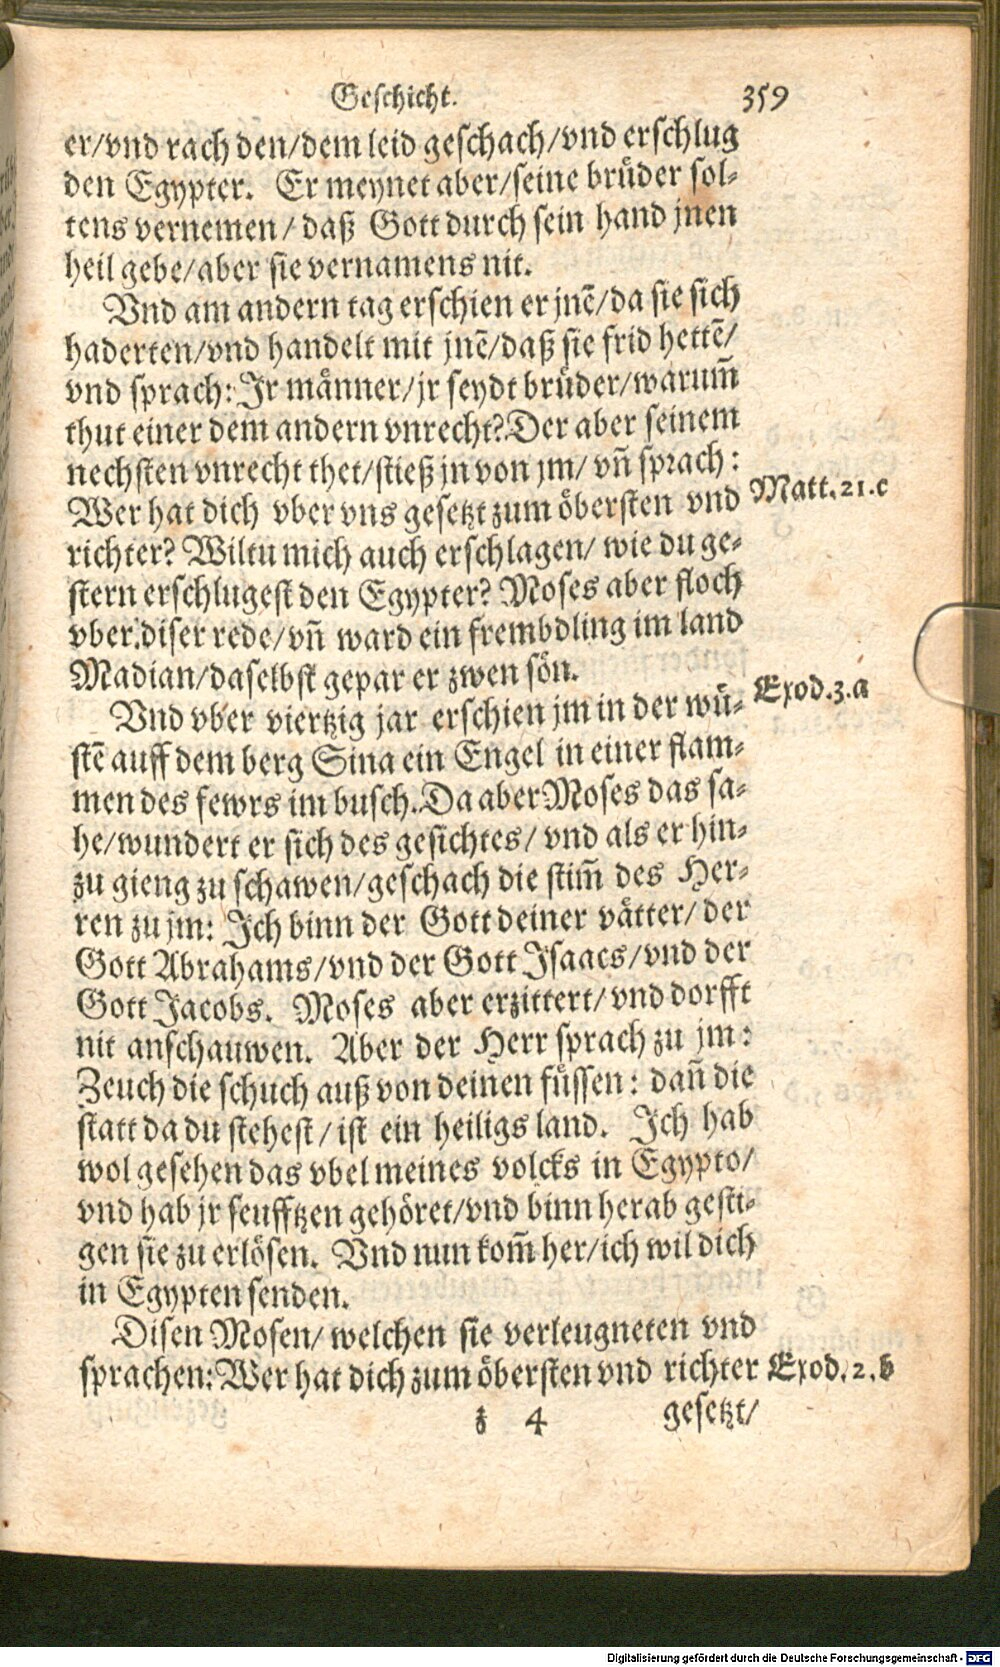 Geschicht. 359
er/vnd rach den/dem leid geschach/vnd erschlug
den Egypter. Er meynet aber/seine brüder sol-
tens vernemen/ daß Gott durch sein hand jnen
heil gebe/aber sie vernamens nit.
Vnd am andern tag erschien er jnẽ/da sie sich
haderten/vnd handelt mit jnẽ/daß sie frid hettẽ/
vnd sprach: Ir männer/jr seydt brüder/warum̃
thut einer dem andern vnrecht? Der aber seinem
nechsten vnrecht thet/stieß jn von jm/ vñ sprach:
Wer hat dich vber vns gesetzt zum öbersten vnd Matt.21.c
richter? Wiltu mich auch erschlagen/ wie du ge-
stern erschlugest den Egypter? Moses aber floch
vber diser rede/vñ ward ein frembdling im land
Madian/daselbst gepar er zwen sön.
Vnd vber viertzig jar erschien jm in der wü- Exod.3.a
stẽ auff dem berg Sina ein Engel in einer flam-
men des fewrs im busch. Da aber Moses das sa-
he/wundert er sich des gesichtes/ vnd als er hin-
zu gieng zu schawen/geschach die stim̃ des Her-
ren zu jm: Ich binn der Gott deiner vätter/ der
Gott Abrahams/vnd der Gott Isaacs/vnd der
Gott Jacobs. Moses aber erzittert/ vnd dorfft
nit anschauwen. Aber der Herr sprach zu jm:
Zeuch die schuch auß von deinen füssen: dañ die
statt da du stehest/ ist ein heiligs land. Ich hab
wol gesehen das vbel meines volcks in Egypto/
vnd hab jr seufftzen gehöret/vnd binn herab gesti-
gen sie zu erlösen. Vnd nun kom̃ her/ich wil dich
in Egypten senden.
Disen Mosen/ welchen sie verleugneten vnd
sprachen: Wer hat dich zum öbersten vnd richter Exod.2.b
z 4 gesetzt/
Digitalisierung gefördert durch die Deutsche Forschungsgemeinschaft - DFG